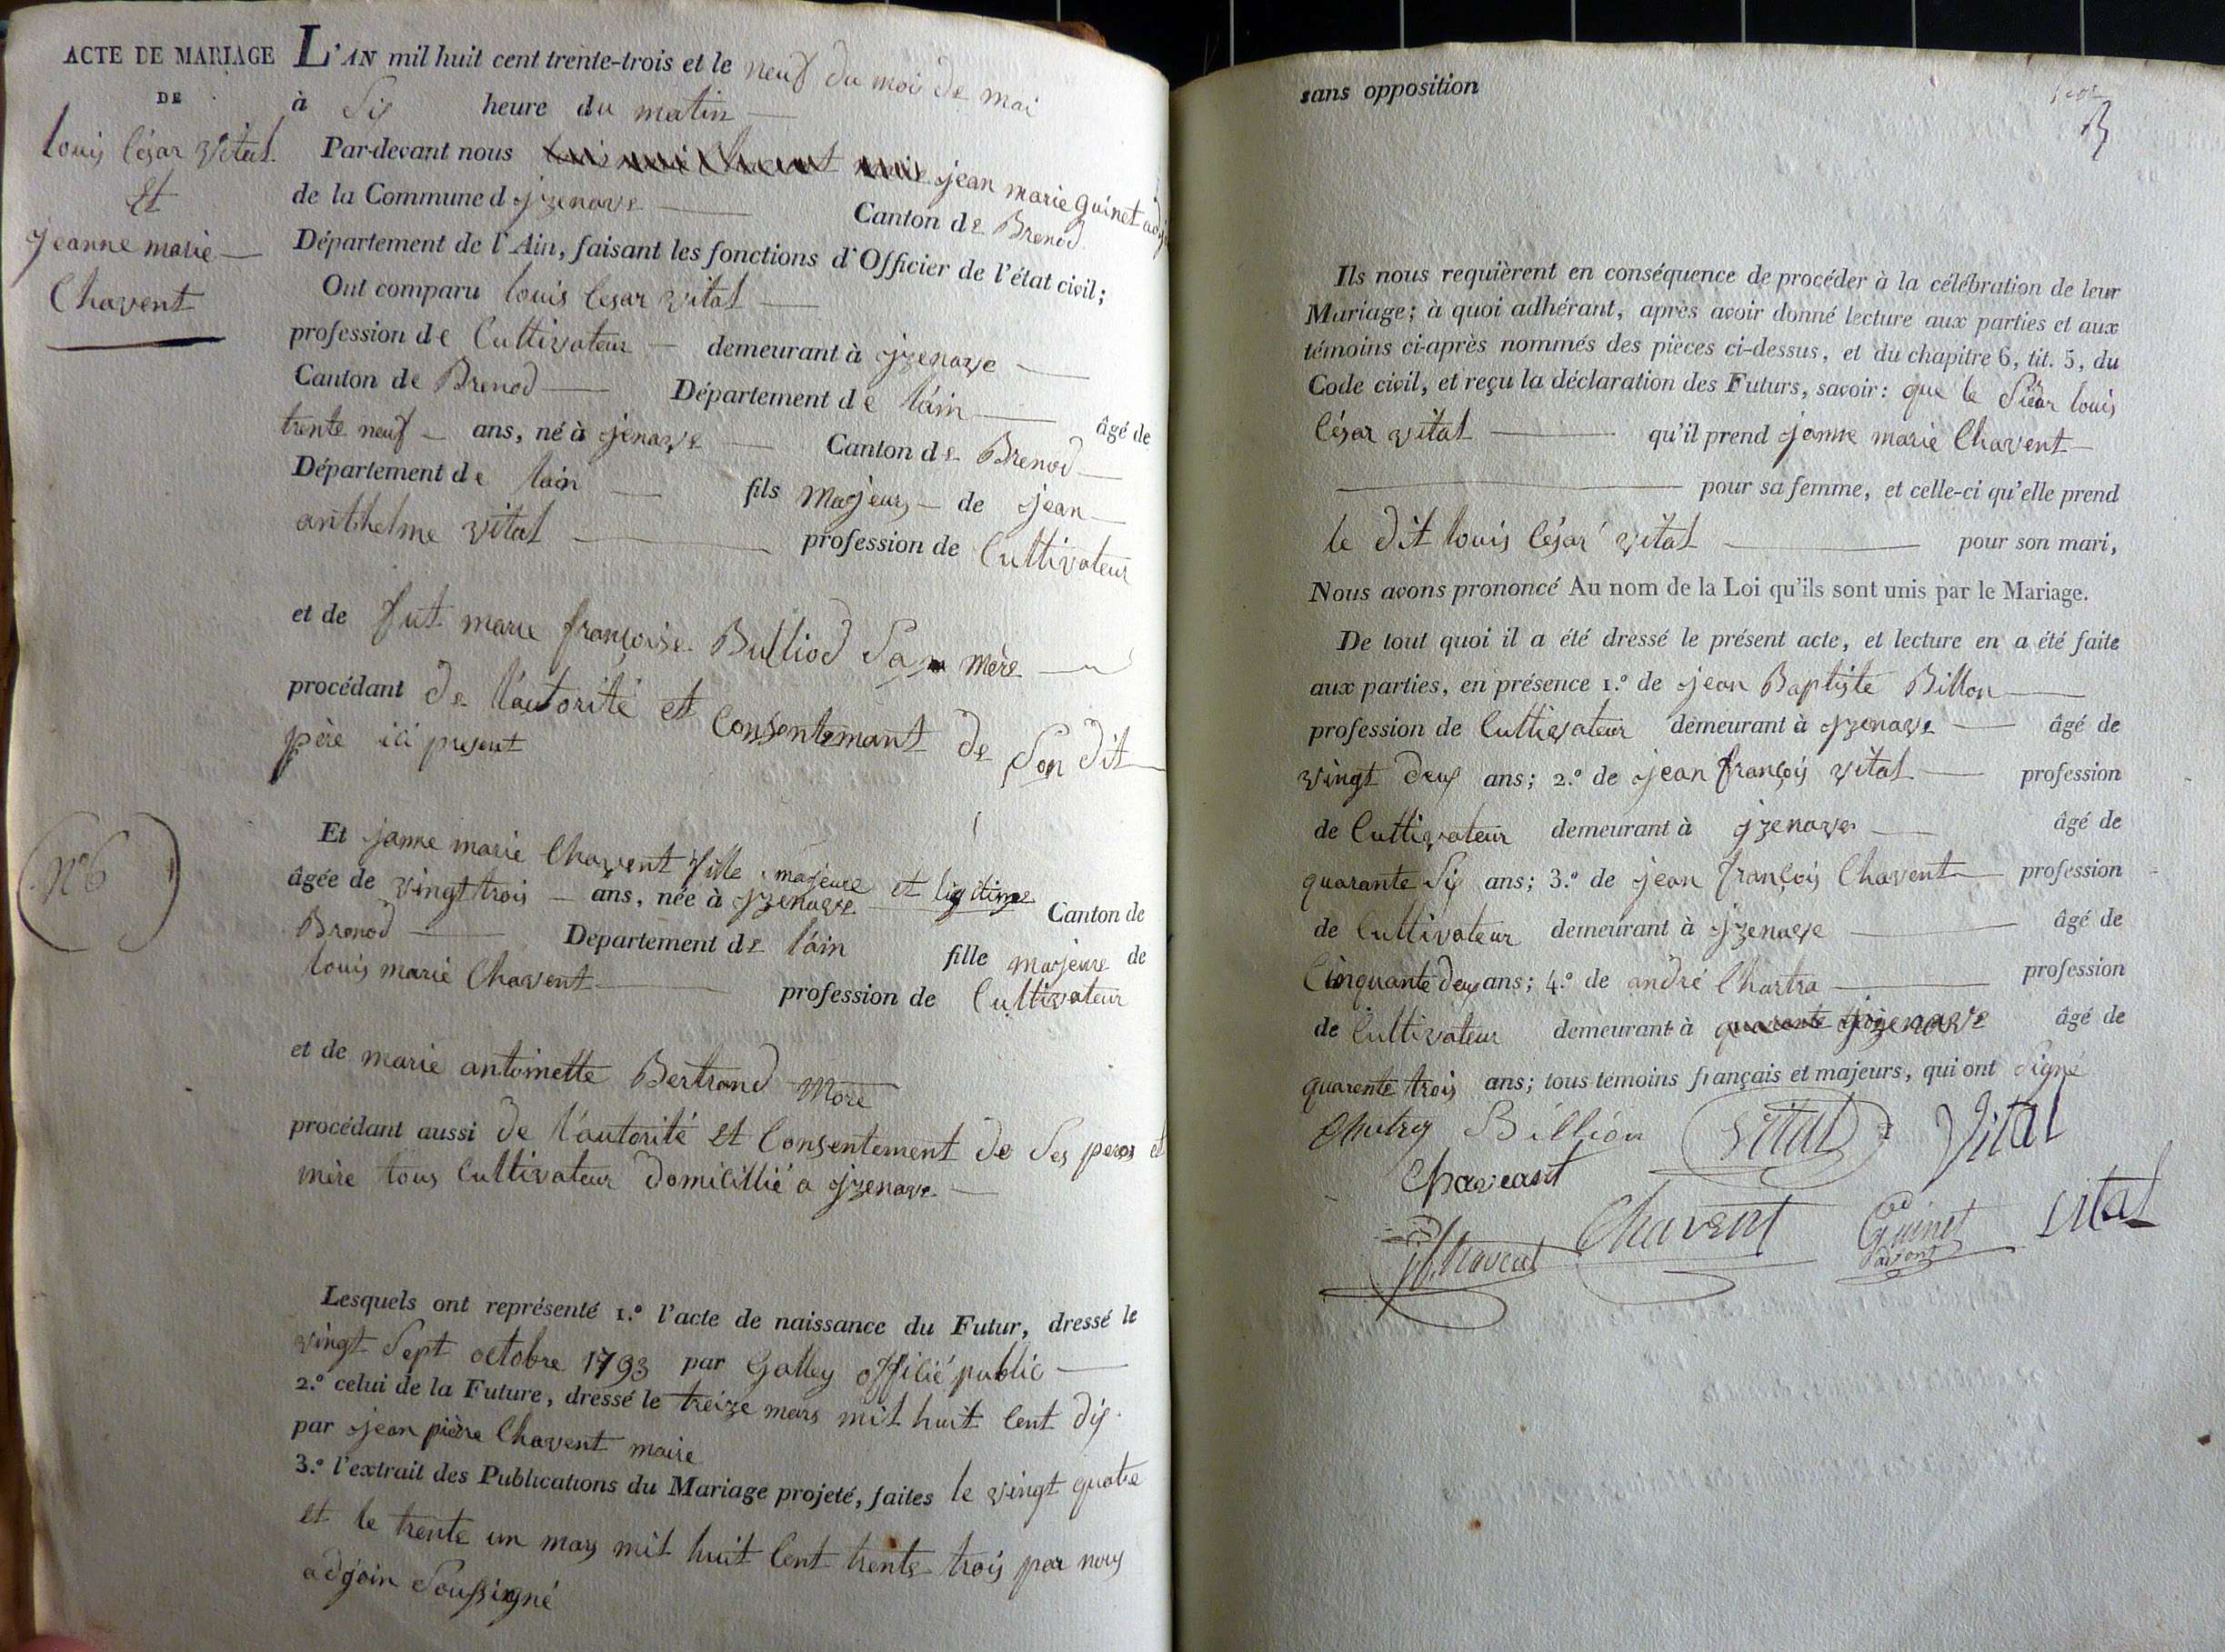 ACTE DE MARIAGE
DE
louis César vital
Et
jeanne marie
Chavent
N°6
L'AN mil huit cent trente-trois et le neuf du mois de mai
à Six heure du matin
Par-devant nous jean marie guinet adj
de la Commune d jzenave Canton de Brenod
Département de l'Ain, faisant les fonctions d'Officier de l'état civil;
Ont comparu louis Cesar vital
profession de Cultivateur demeurant à jzenave
Canton de Brenod Département de lain âgé de
trente neuf ans, né à jenave Canton de Brenod
Département de lain fils Majeur de jean
anthelme vital profession de Cultivateur
et de fut marie françoise Bulliod Sa mère
procédant de l'autorité et Consentemant de Son dit
père ici present
Et janne marie Chavent fille majeure et ligitime
âgée de vingt trois ans, née à jzenave Canton de
Brenod Departement de lain fille majeure de
louis marie Chavent profession de Cultivateur
et de marie antoinette Bertrand More
procédant aussi de l'autorité et Consentement de Ses peres et
mère tous Cultivateur domicillié a jzenave
Lesquels ont représenté 1.° l'acte de naissance du Futur, dressé le
vingt Sept octobre 1793 par Galley officié public
2.° celui de la Future, dressé le treize mars mil huit Cent dix
par jean pierre Chavent maire
3.° l'extrait des Publications du Mariage projeté, faites le vingt quatre
et le trente un mars mil huit Cent trente trois par nous
adjoin Soussigné
sans opposition
Ils nous requièrent en conséquence de procéder à la célébration de leur
Mariage; à quoi adhérant, après avoir donné lecture aux parties et aux
témoins ci-après nommés des pièces ci-dessus, et du chapitre 6, tit. 5, du
Code civil, et reçu la déclaration des Futurs, savoir: que le Sieur louis
César vital qu'il prend janne marie Chavent
pour sa femme, et celle-ci qu'elle prend
le dit louis César vital pour son mari,
Nous avons prononcé Au nom de la Loi qu'ils sont unis par le Mariage.
De tout quoi il a été dressé le présent acte, et lecture en a été faite
aux parties, en présence 1.° de jean Baptiste Billon
profession de Cultivateur demeurant à jzenave âgé de
vingt deux ans; 2.° de jean françois vital profession
de Cultivateur demeurant à jzenave âgé de
quarante Six ans; 3.° de jean françois Chavent profession
de Cultivateur demeurant à jzenave âgé de
Cinquante deux ans; 4.° de andré Chartra profession
de Cultivateur demeurant à quarante jzenave âgé de
quarente trois ans; tous témoins français et majeurs, qui ont Signé
Billion Vital Vital
Chaveant
Chavent Guinet vital